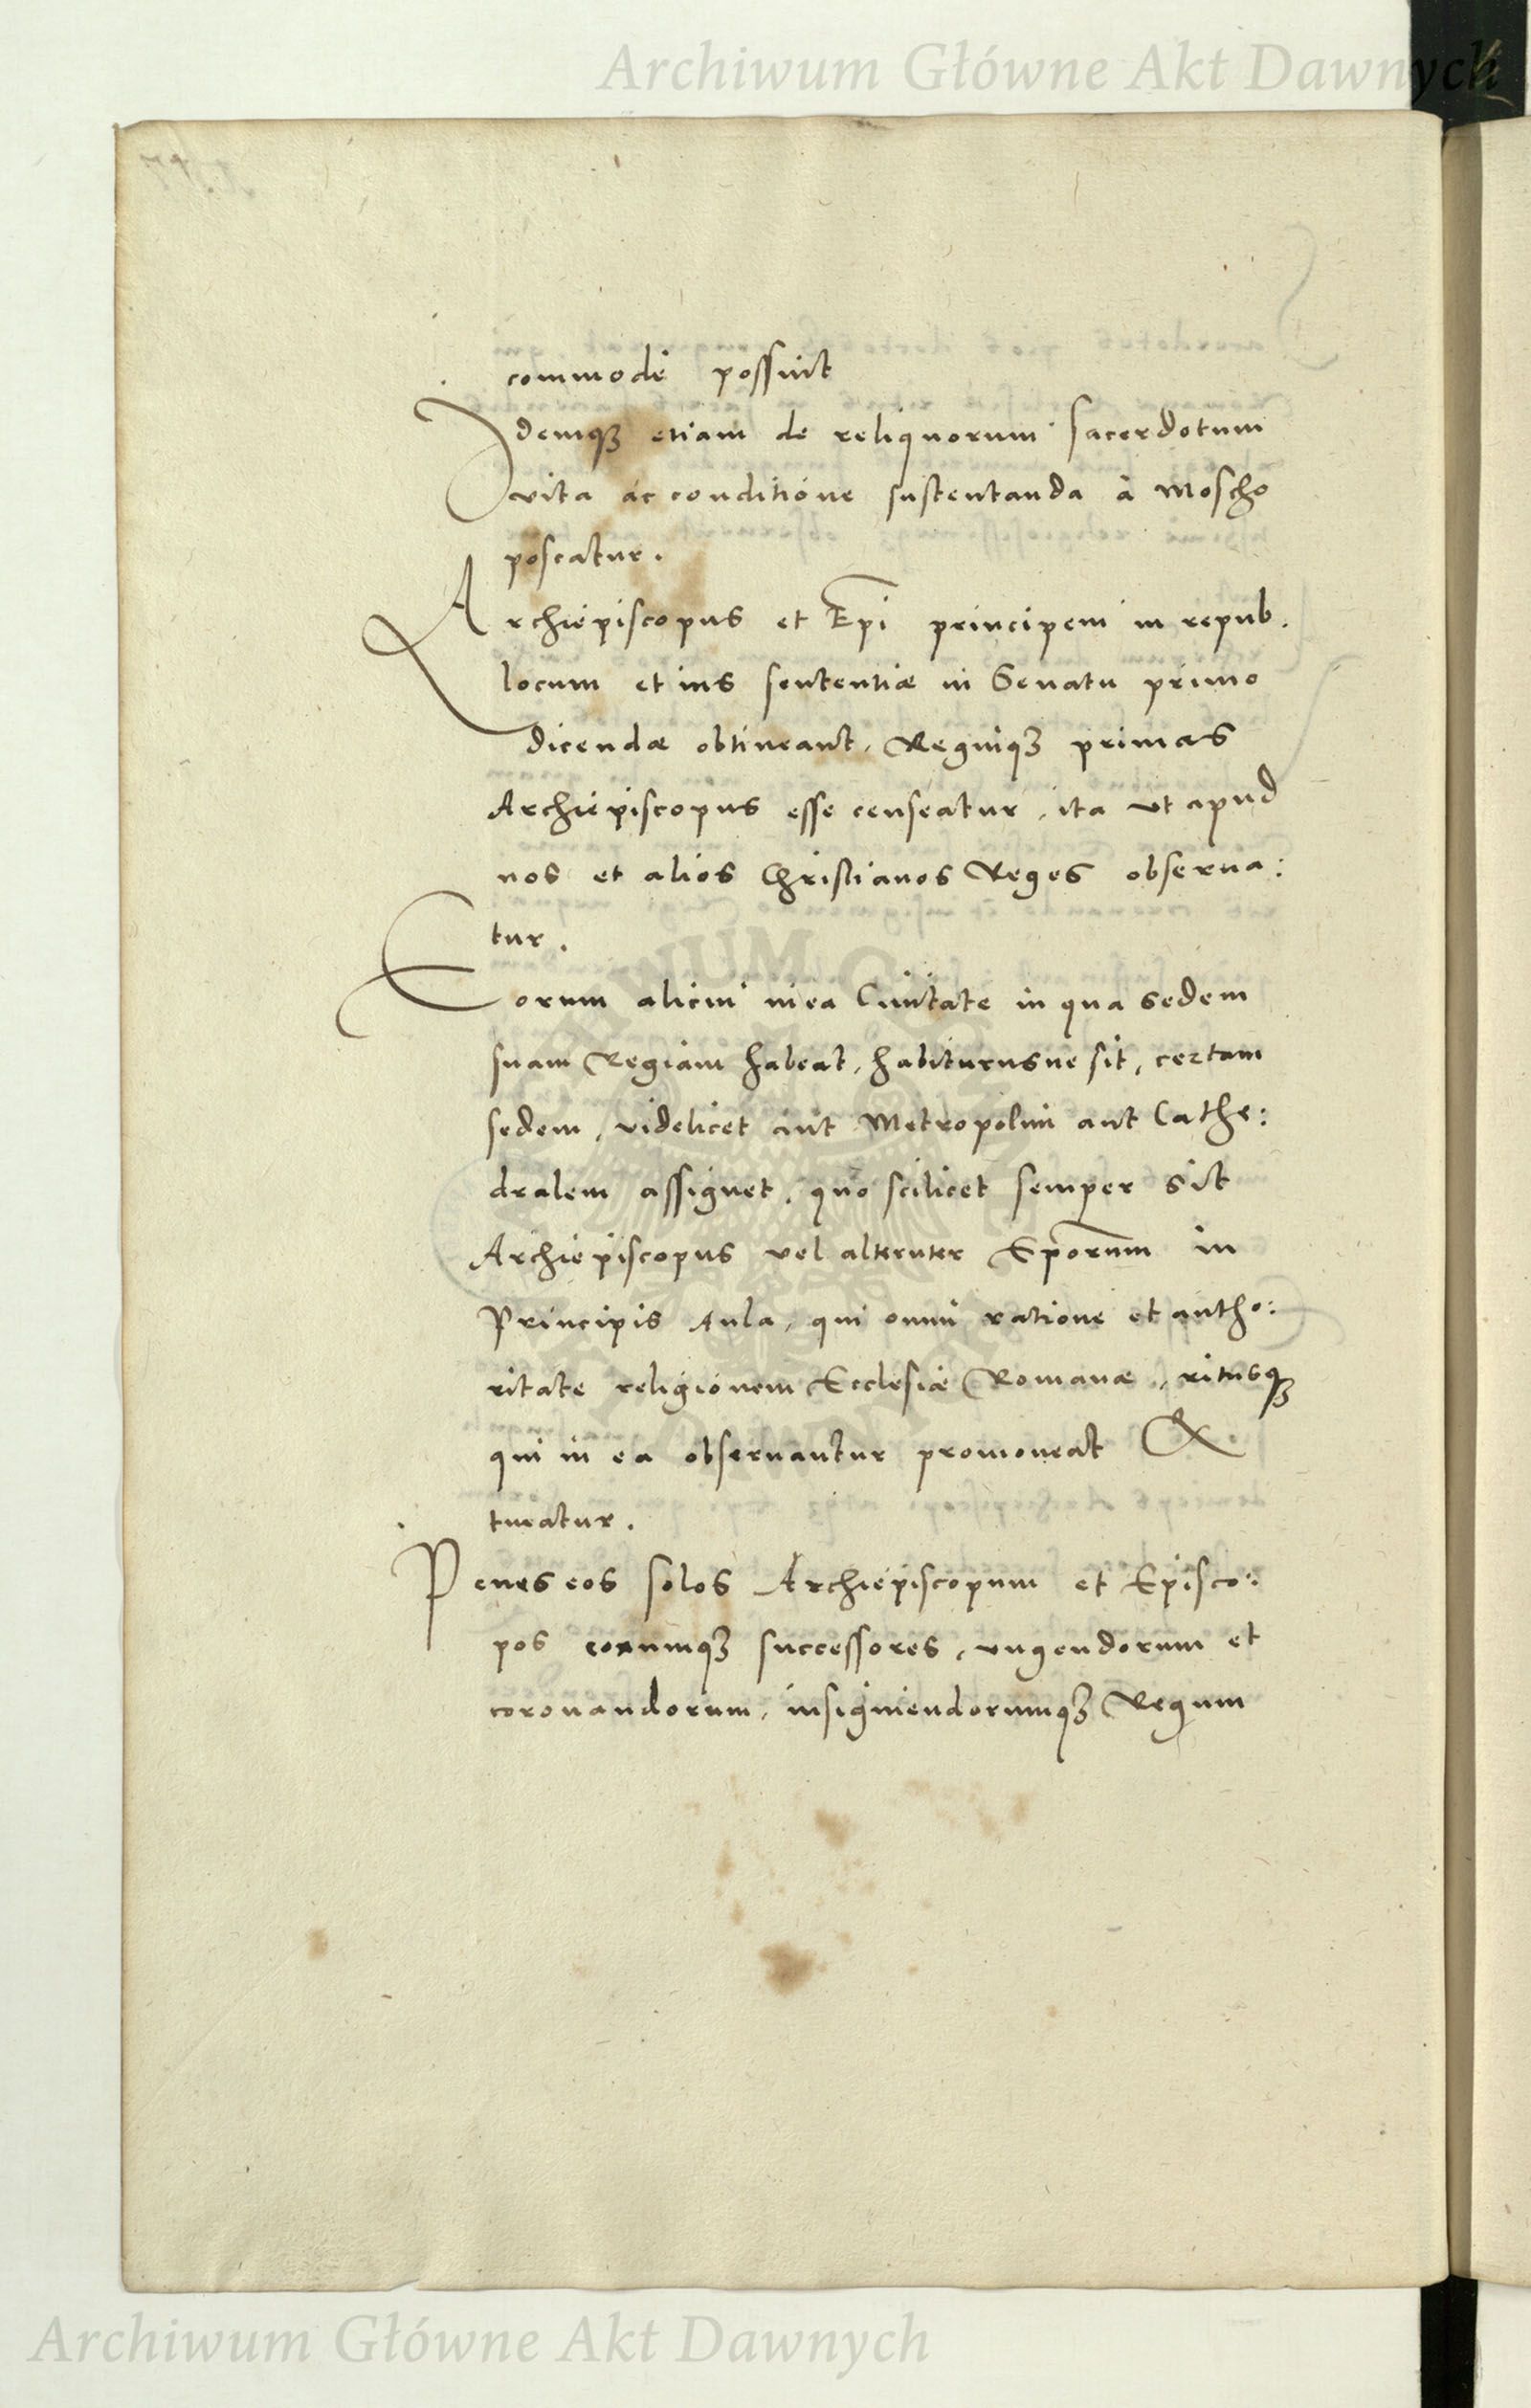 Archiwum Główne Akt Dawnych
commodè possint
Idemqȝ etiam de reliquorum sacerdotum
vita ac conditione sustentanda à Moscho
poscatur.
Archiepiscopus et Ep̅i principem in repub.
locum et ius sententiæ in Senatu primo
dicendæ obtineant, Regniqȝ primas
Archiepiscopus esse censeatur, ita vt apud
nos et alios Christianos Reges obserua:
tur.
Eorum alicui in ea Ciuitate in qua sedem
suam Regiam habeat, habiturusue sit, certam
sedem, videlicet aut Metropolim aut Cathe:
dralem assignet, quo scilicet semper sit
Archiepiscopus vel alteruter Ep̅orum in
Principis Aula, qui omni ratione et autho:
ritate religionem Ecclesiæ Romanæ, ritusqȝ
qui in ea obseruantur promoueat &
tueatur.
Penes eos solos Archiepiscopum et Episco:
pos eorumqȝ successores, vngendorum et
coronandorum, insigniendorumqȝ Regum
Archiwum Główne Akt Dawnych